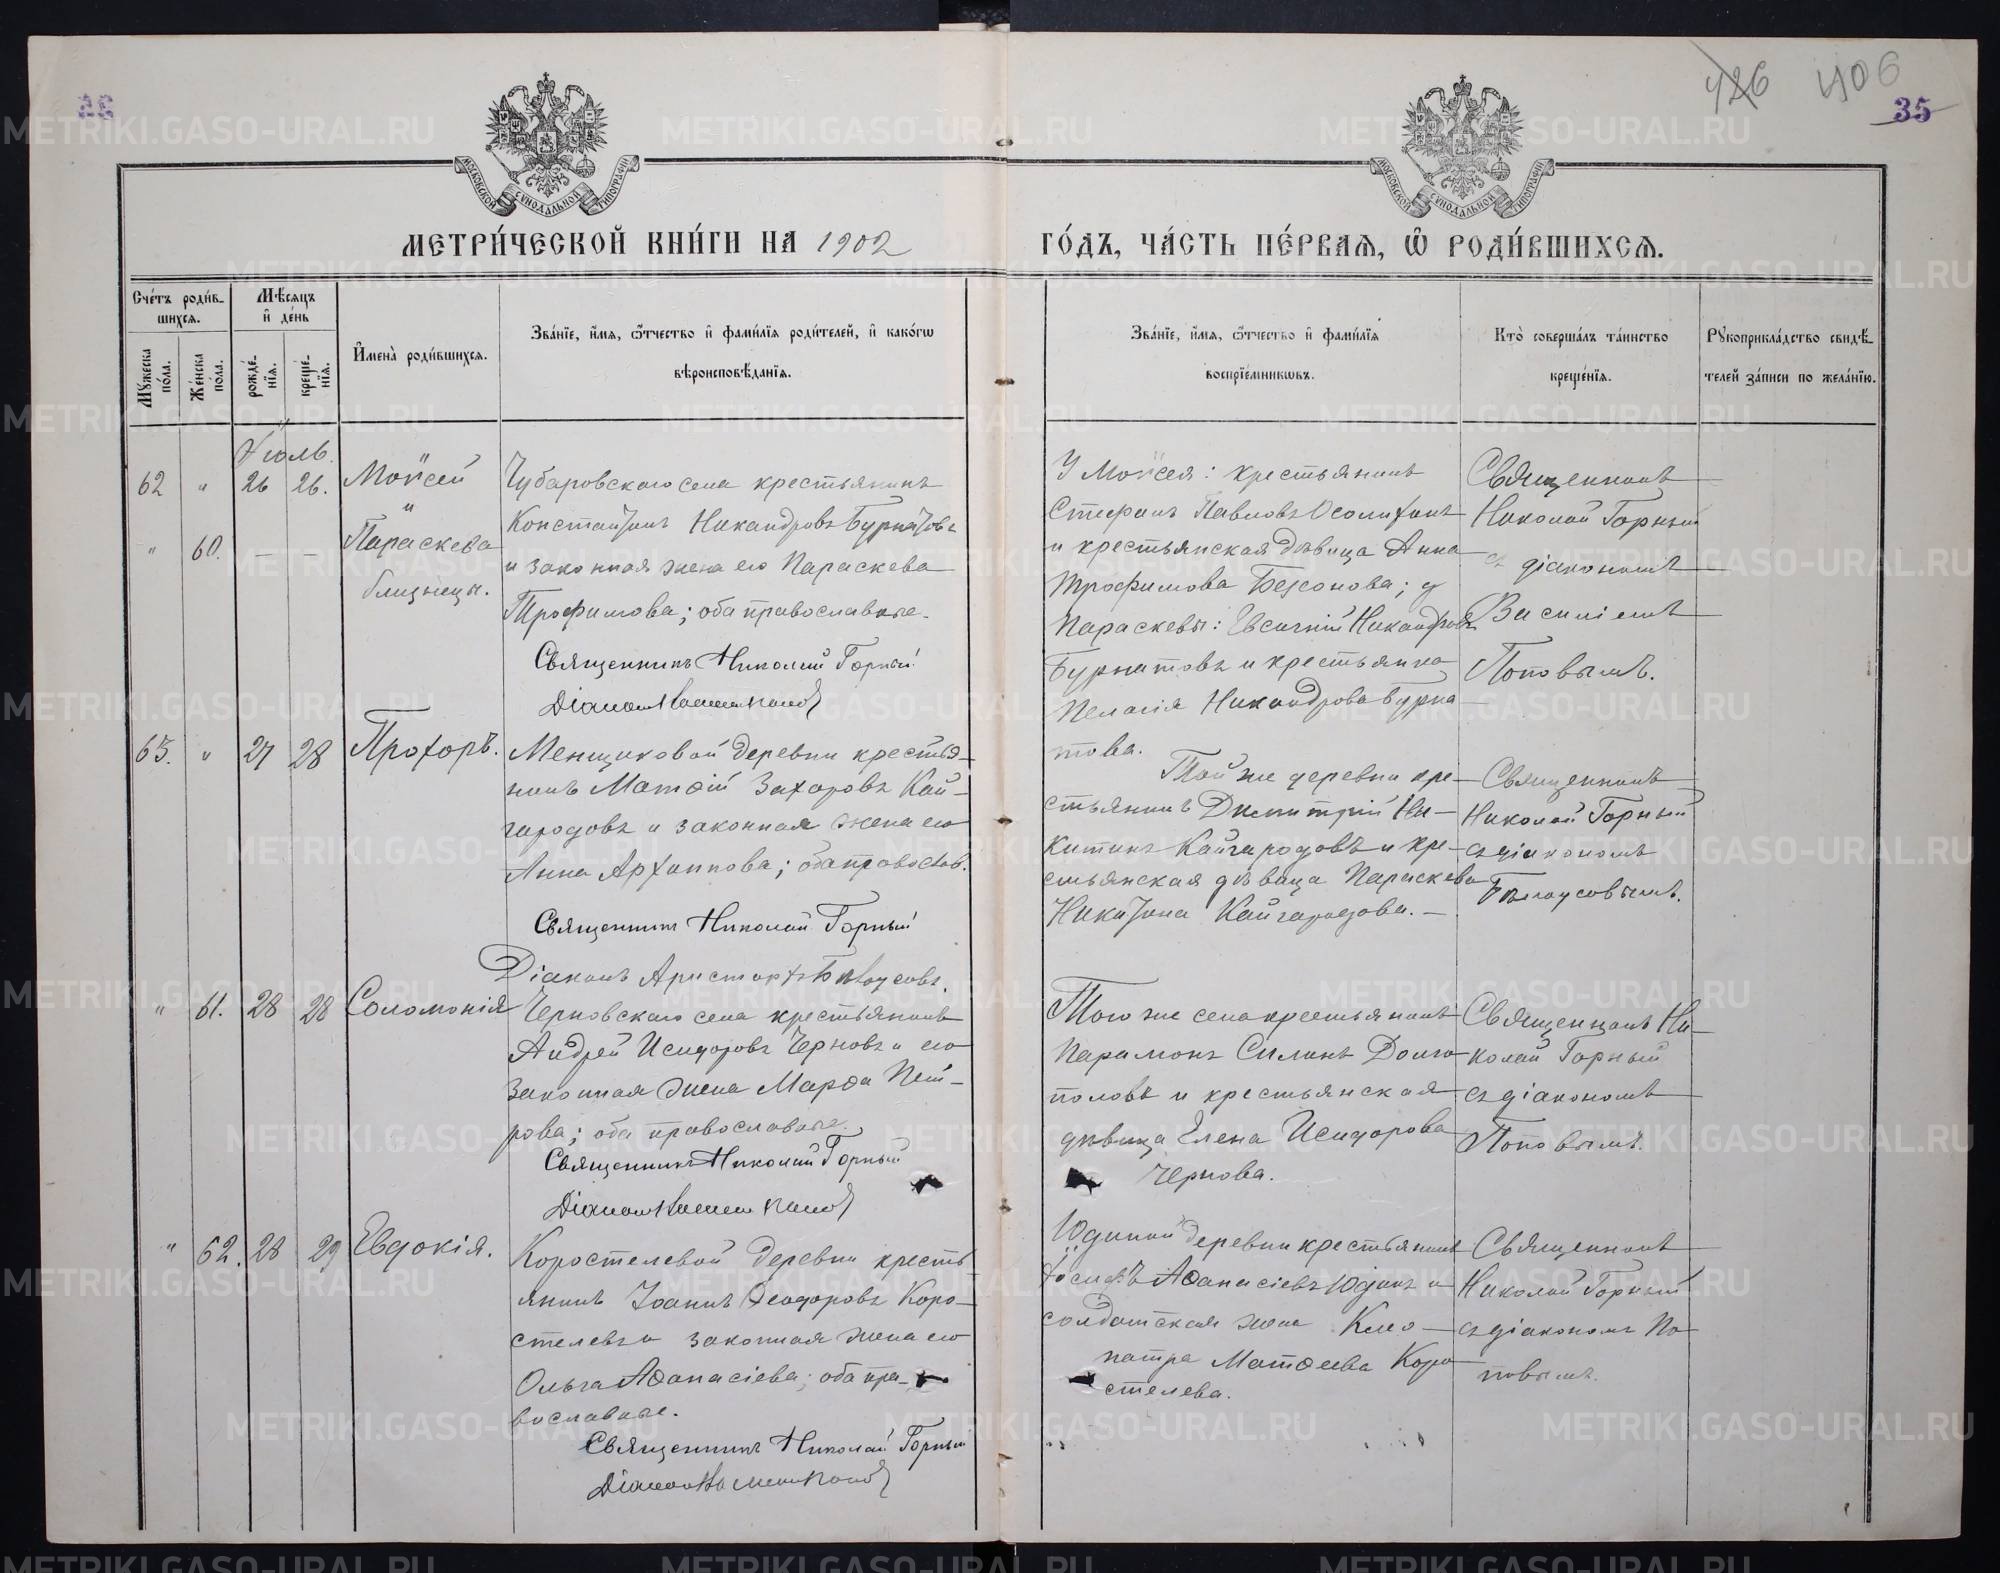 426 406
35
МОСКОВСКОЙ СѴНОДАЛЬНОЙ ТИПОГРАФІИ
МОСКОВСКОЙ СѴНОДАЛЬНОЙ ТИПОГРАФІИ
МЕТРИ́ЧЕСКОЙ КНИ́ГИ НА 1902
ГО́ДЪ, ЧА́СТЬ ПЕ́РВАѦ, Ѽ РОДИ́ВШИХСѦ.
Сче́тъ роди́в-
шихсѧ.
Мѣ́сѧцъ
и҆ де́нь
Мꙋ́жеска по́ла.
Же́нска по́ла.
рожде́-нїѧ.
креще́-нїѧ.
И҆мена̀ роди́вшихсѧ.
Зва́нїе, и҆́мѧ, ѻ҆́тчество и҆ фами́лїѧ роди́телей, и҆ како́гѡ
вѣроисповѣ́данїѧ.
Зва́нїе, и҆́мѧ, ѻ҆́тчество и҆ фами́лїѧ
воспрїе́мникѡвъ.
Кто̀ соверша́лъ та́инство
креще́нїѧ.
Рꙋкоприкла́дство свидѣ́-
телей за́писи по жела́нїю.
Іюль.
62 " 26 26. Моисей
и
" 60. — — Параскева
близнецы.
Чубаровскаго села крестьянинъ
Константинъ Никандровъ Бурнатовъ
и законная жена его Параскева
Трофимова; оба православные.
Священникъ Николай Горный
Діаконъ Василій Поповъ
У Моисея: крестьянинъ
Стефанъ Павловъ
и крестьянская дѣвица Анна
Трофимова Безсонова; у
Параскевы: Евсигній Никандровъ
Бурнатовъ и крестьянка
Пелагія Никандрова Бурна
това.
Священникъ
Николай Горный
съ діакономъ
Василіемъ
Поповымъ.
63. " 27 28 Прохоръ.
Менщиковой деревни крестья-
нинъ Матѳій Захаровъ Кай-
городовъ и законная жена его
Анна Архиппова; оба православ.
Священникъ Николай Горный
Діаконъ Аристархъ Бѣлоусовъ.
Той же деревни кре-
стьянинъ Димитрій Ни-
китинъ Кайгородовъ и кре-
стьянская дѣвица Параскева
Никитина Кайгородова.—
Священникъ
Николай Горный
съ діакономъ
Бѣлоусовымъ.
" 61. 28 28 Соломонія
Черновскаго села крестьянинъ
Андрей Исидоровъ Черновъ и его
законная жена Марѳа Пет-
рова; оба православные.
Священникъ Николай Горный
Діаконъ Василій Поповъ
Того же села крестьянинъ
Парамонъ Силинъ Долго
половъ и крестьянская
дѣвица Елена Исидорова
Чернова.
Священникъ Ни-
колай Горный
съ діакономъ
Поповымъ.
" 62. 28 29 Евдокія.
Коростелевой деревни кресть
янинъ Іоаннъ Ѳеодоровъ Коро-
стелевъ и законная жена его
Ольга Аѳанасіева; оба пра-
вославные.
Священникъ Николай Горный
Діаконъ Василій Поповъ
Юдиной деревни крестьянинъ
Іосифъ Аѳанасіевъ Юдинъ и
солдатская жена Клео-
патра Матѳеева Коро
стелева.
Священникъ
Николай Горный
съ діакономъ По
повымъ.